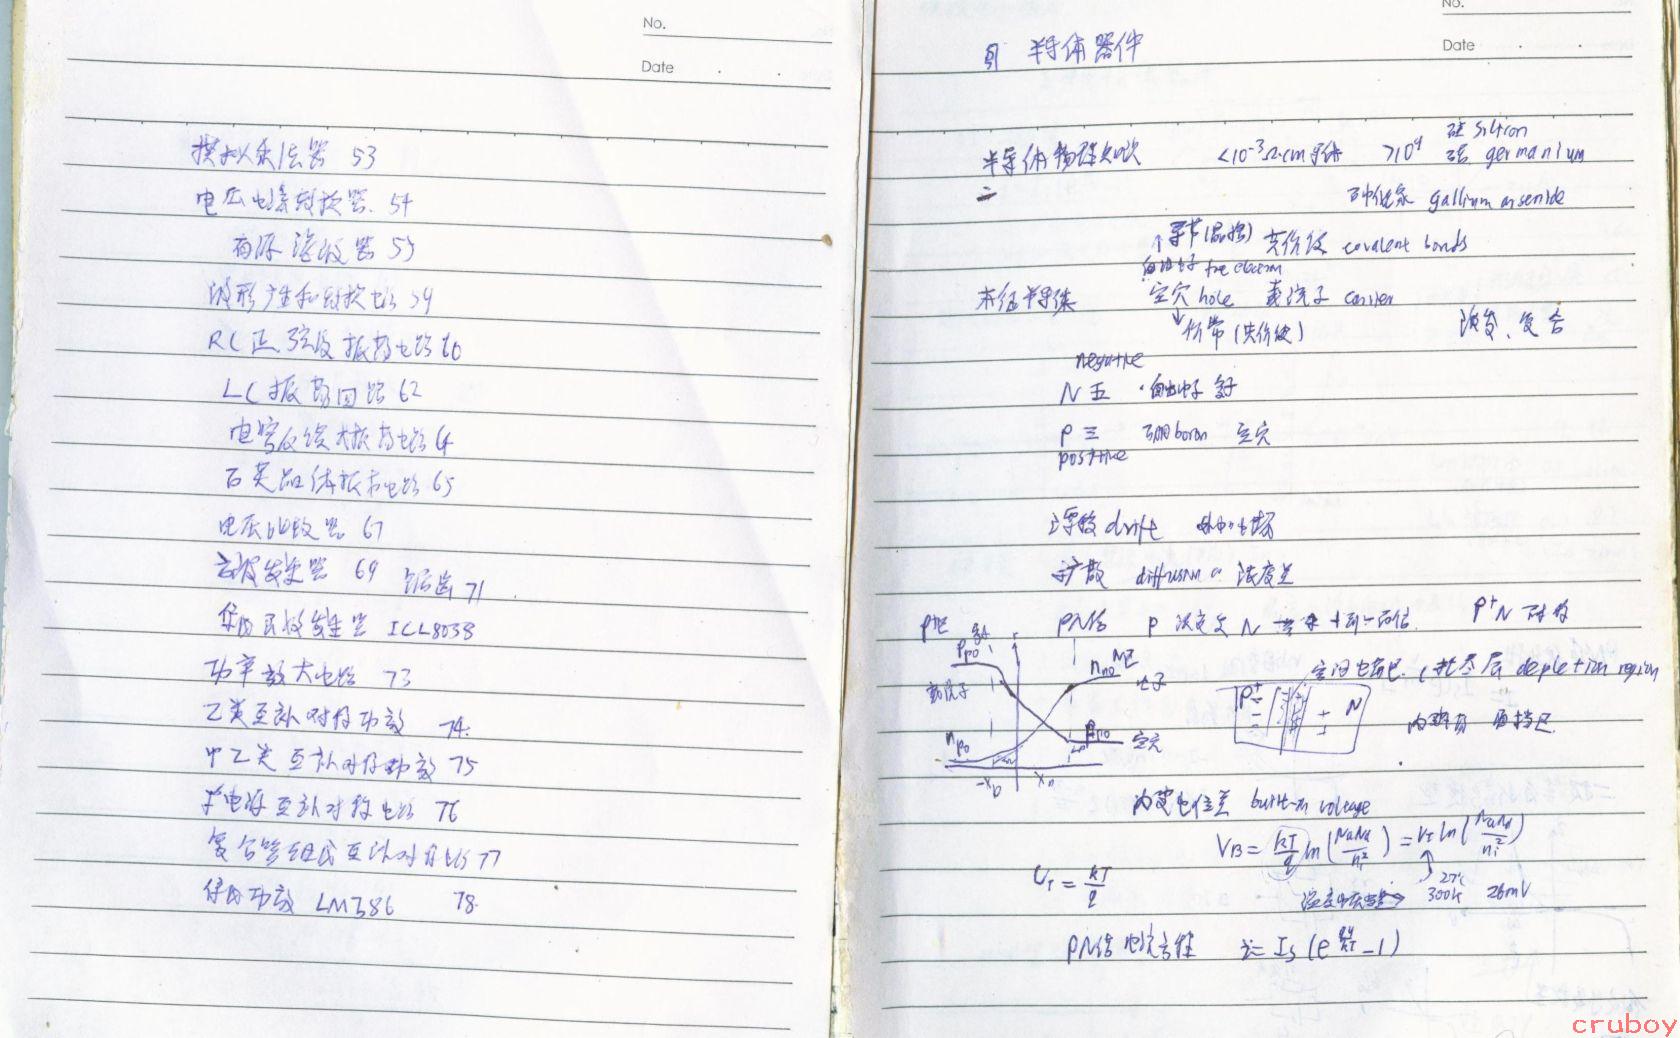 No.
Date
模拟乘法器 53
电压电流转换器 54
有源滤波器 55
波形产生和转换电路 59
RC正弦波振荡电路 60
LC振荡回路 62
电容反馈式振荡电路 64
石英晶体振荡电路 65
电压比较器 67
方波发生器 69 锯齿 71
集成函数发生器 ICL8038
功率放大电路 73
乙类互补对称功放 74
甲乙类互补对称功放 75
单电源互补对称电路 76
复合管组成互补对称电路 77
集成功放 LM386 78
No.
Date
半导体器件
半导体物理知识 <10⁻³Ω·cm导体 >10⁹ 硅 silicon
锗 germanium
砷化镓 gallium arsenide
↑导带 共价键 covalent bonds
自由电子 free electron
本征半导体 空穴 hole 载流子 carrier
↓价带(共价键) 激发、复合
negative
N 五 自由电子
P 三 硼 boron 空穴
positive
漂移 drift 电场
扩散 diffusion 浓度差
P区 PN结 P N P⁺N
Ppo nno N区 电子
载流子
空间电荷区(耗尽层 depletion region
P⁺ N
npo Pno 空穴
-Xp Xn
内建电位差 built-in voltage
VB = kT/q ln(NaNd/ni²) = VT ln(NaNd/ni²)
UT = kT/q
27℃
300K 26mV
PN结电流方程 i = Is(e^(qu/kT) - 1)
cruboy